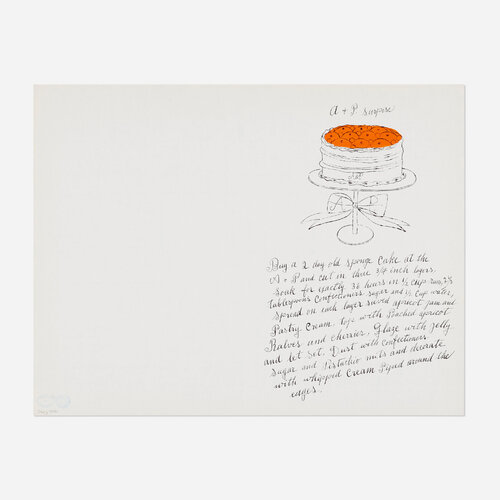 A + P. Surprise
A+P
Buy a 2 day old sponge cake at the
A + P and cut in three 3/4 inch layers.
Soak for exactly 36 hours in 1/2 cup rum, 2 1/2
tablespoons Confectioners sugar and 1/2 cup water,
spread on each layer sieved apricot jam and
Pastry Cream. top with Poached apricot
Halves and cherries. Glaze with jelly
and let set. Dust with Confectioners
Sugar and Pistachio nuts and decorate
with whipped Cream Piped around the
edges!